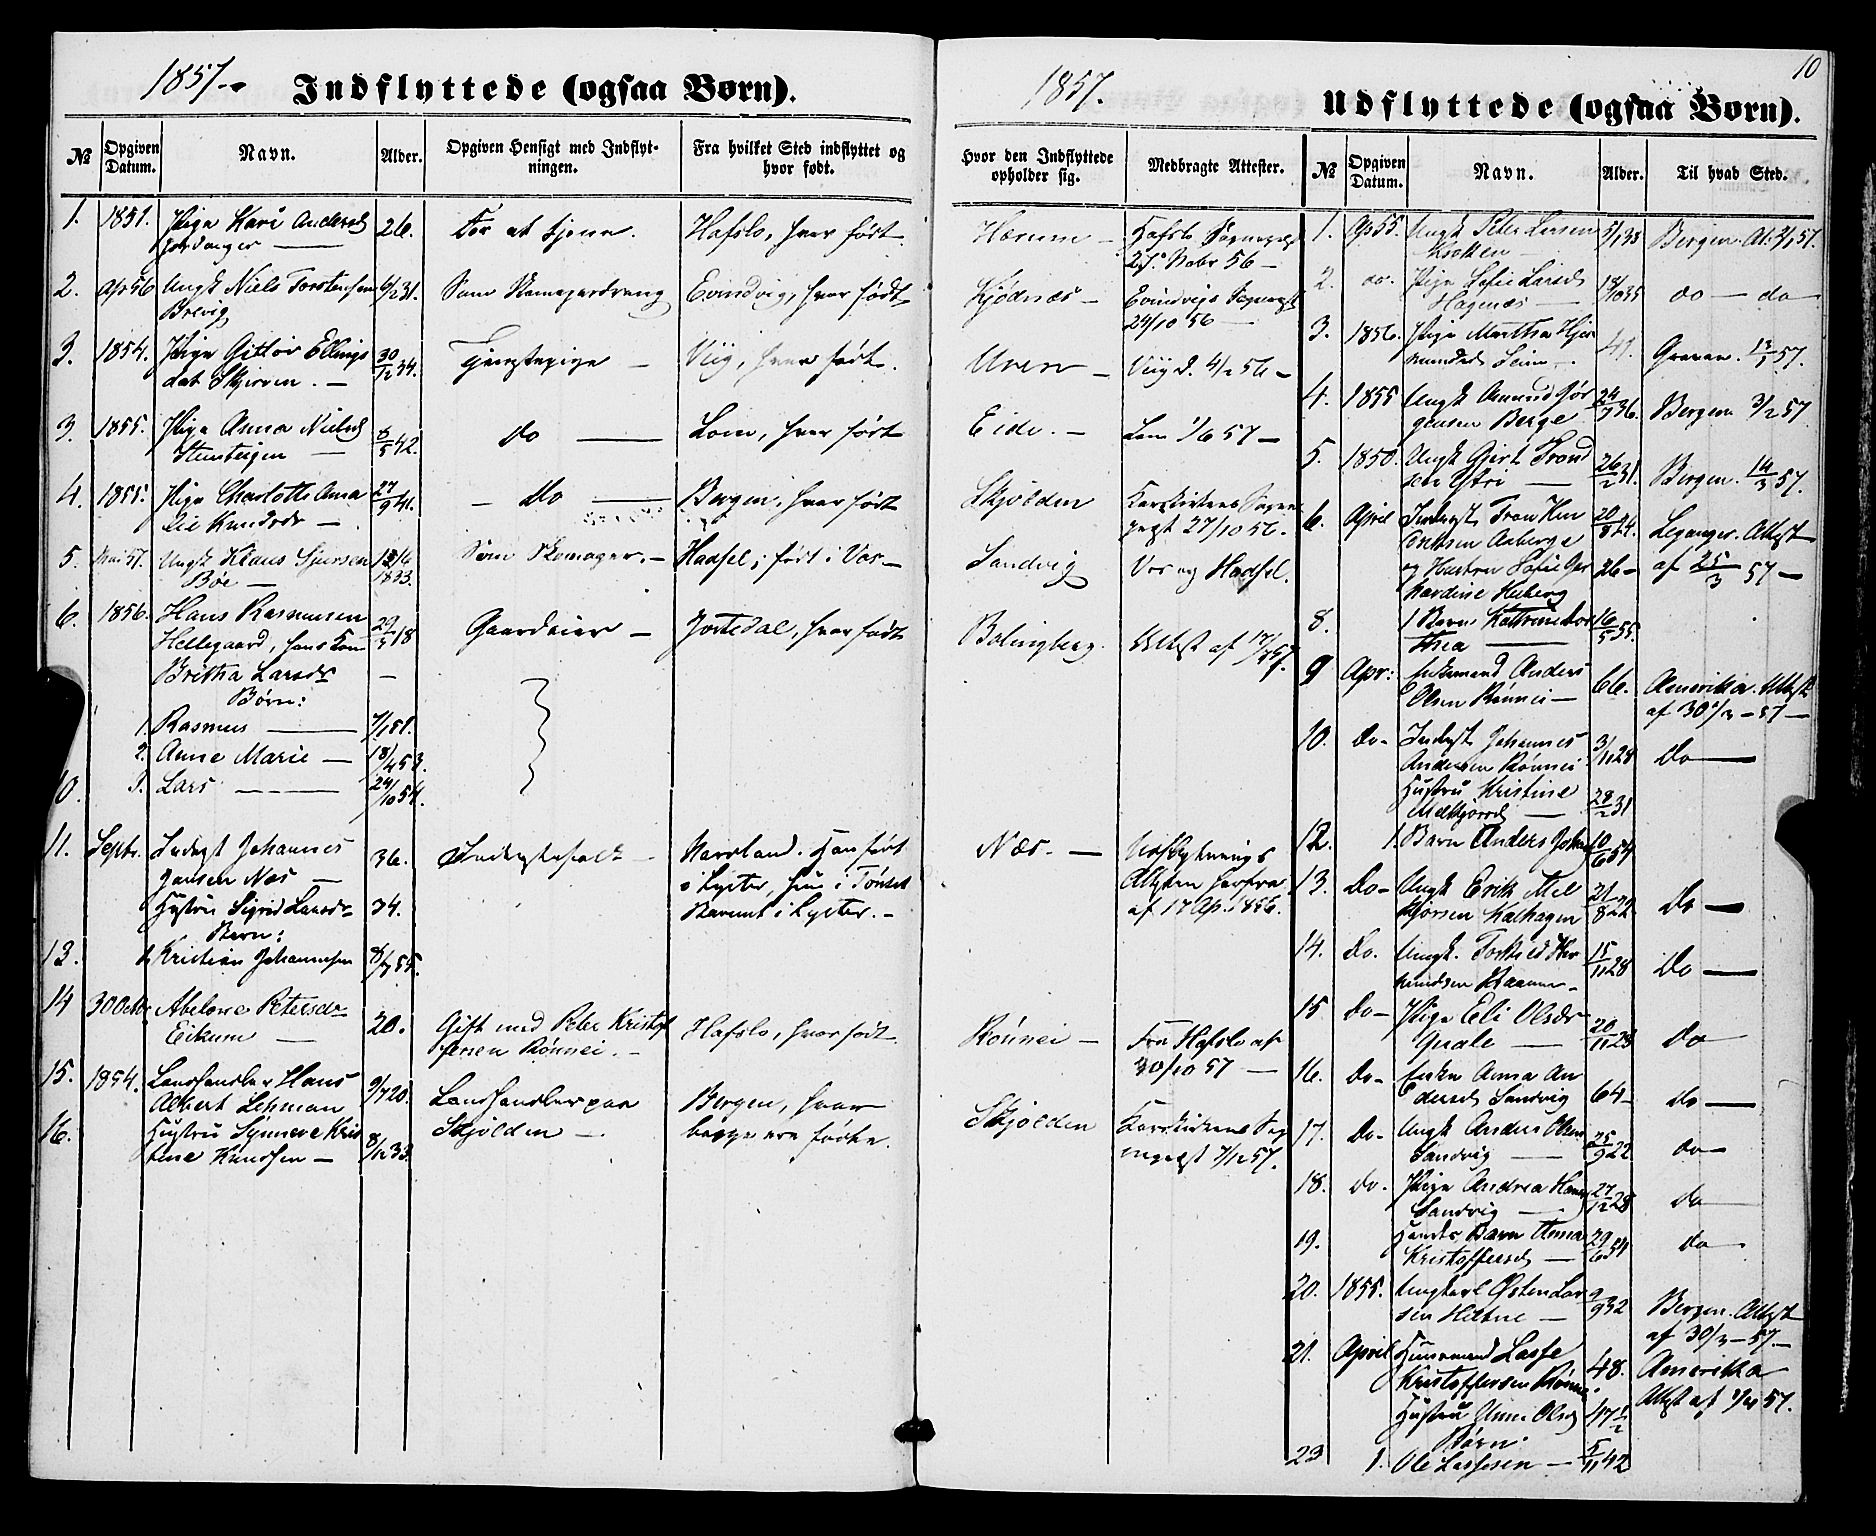 1857.
Indflyttede (ogsaa Børn).
№ Opgiven Datum. Navn. Alder. Opgiven Hensigt med Indflytningen. Fra hvilket Sted indflyttet og hvor født. Hvor den Indflyttede opholder sig. Medbragte Attester.
1. 1851. Pige Kari Andersd 26. For at tjene. Hafslo, hvor født. Hafslo Sognepgst
27 Novbr 56
2. Apr 56 Ungk Niels Torstensen 31. Som Skomagerdreng Evindvig, hvor født Kjødnæs Evindvigs Sognepgst
Brevig 24/10 56
3. 1854. Pige Gitlov Ellings 30/12 34. Tjenstepige Viig, hvor født. Uren Viig d. 4/12 56
dat Skjerven.
3. 1855. Pige Anna Nielsd 8/5 42. do Lom, hvor født Eide. Lom 1/6 57
Stensteigen
4. 1855. Pige Charlotte Ama 27/9 41. Do Bergen, hvor født Skjolden Korskirkens Sogne
lie Knudsdr pgst 27/10 56.
5. Mai 57. Ungk Klaus Sjursen 14 1833. Som Skomager. Hadsel; født i Vos Sandvig Vos og Hadsel.
Bøe
6. 1856. Hans Rasmussen 29/3 18 Gaardeier Jostedal, hvor født Bolingberg. Attest af 17/7 57.
Hellegaard, hans Kone
Britha Larsdr
Børn:
1. Rasmus 7/1 51.
2. Anne Marie 18/4 53.
10. 3. Lars 24/10 54.
11. Septr. Inderst Johannes 36. Inderstefolk Nordland. Han født Næs. Udflytnings
Jansen Næs i Lyster, hun i Tønset Attesten herfra
Hustru Sigrid Larsdr 34. Barnet i Lyster. af 17 Ap. 1856.
Børn:
13. 1. Kristian Johannesen 8/7 55.
14 30 Octbr Abelone Petersdr 20. Gift med Peter Kristof Hafslo, hvor født. Rønnei Fra Hafslo af
Eikum fersen Rønnei. 30/10 57
15. 1854. Landhandler Hans 9/7 20. Landhandler paa Bergen, hvor Skjolden Korskirkens Sog
Albert Lehman Skjolden begge ere fødte. nepgst 7/12 57.
16. Hustru Synneve Kris 8/12 33.
tine Knudsen
1857.
Udflyttede (ogsaa Børn).
10
№ Opgiven Datum. Navn. Alder. Til hvad Sted.
1. Ap 55. Ungk Peter Larsen 5/1 35 Bergen. At. 2/1 57.
Kroken
2. do. Pige Sofie Larsd 18/10 35 do do
Hagnæs
3. 1856. Pige Martha Hjer 41. Graven. 13/1 57.
mundsd Seim
4. 1855 Ungk Amund Jør 24/7 36. Bergen 3/2 57.
gensen Berge
5. 1850. Ungk Gjert Trond 26/2 31. Bergen. 14/3 57.
sen Ytri
6. April Inderst 20/8 24. Leganger. Attest
og Hustru Sofie Ger 26 af 25/3 57
hardine
8. 1 Barn Kathrine Dor 16/5 55.
thea
9 Apr: Anders 66. Amerika. Attest
Olsen Rønnei af 30/3 57
10. Do Inderst Johannes 3/11 28 Do
Andersen Rønnei
Hustru Kristine 28/2 31
12. 1. Barn Anders Johan 10/6 54
13. Do Ungk Erik Mel 21/8 22 Do
kjorsen Kalhagen
14. Do. Ungk. Torkild Her 15/11 28 Do
mundsen
15 Do Pige Eli Olsdr 20/11 23 Do
Qvale
16. Do Enke Anna An 64 do
dersd Sandvig
17. Do Ungk Anders Olsen 25/9 22. do
Sandvig
18. do. Pige Andrea Hans 27/12 28 Do
Sandvig
19. Hendes Barn Anna 29/6 54 do
Kristoffersd
20. 1855. Ungkarl Østen Lar 9/9 32 Bergen. Attest
sen Heltne af 30/3 57
21. April Huusmand Lasse 48. Amerika
Kristoffersen Rønnei Attest af 1/4 57.
Hustru Unni Olsd 47½
Børn.
23 1. Ole Lassesen 5/11 42